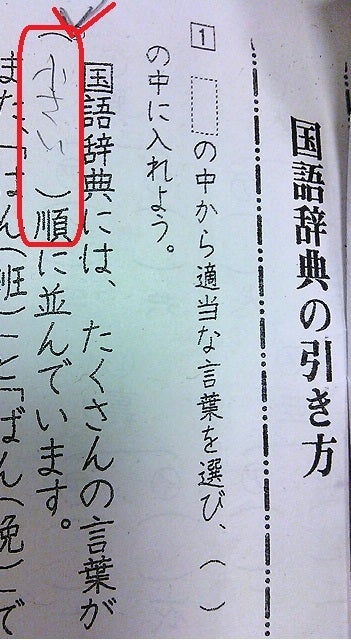 国語辞典の引き方
1 の中から適当な言葉を選び、( )
の中に入れよう。
国語辞典には、たくさんの言葉が
(小さい)順に並んでいます。
また、「はん(班)」と「ばん(晩)」で